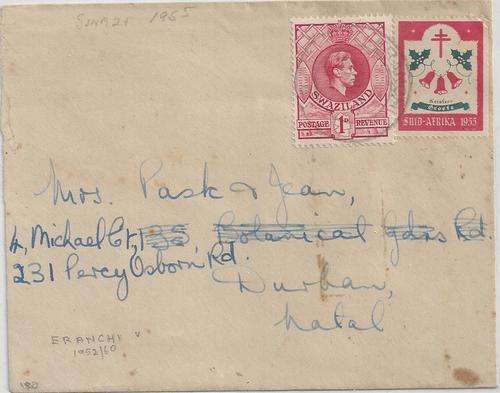 SWAZI 1955
SWAZILAND
POSTAGE 1D REVENUE
Kersfees
Groete
SUID-AFRIKA 1953
Mrs. Pask & Jean,
4, Michael Crt, 135, Botanical Gdns Rd.
231 Percy Osborn Rd.
Durban,
Natal
1952/60